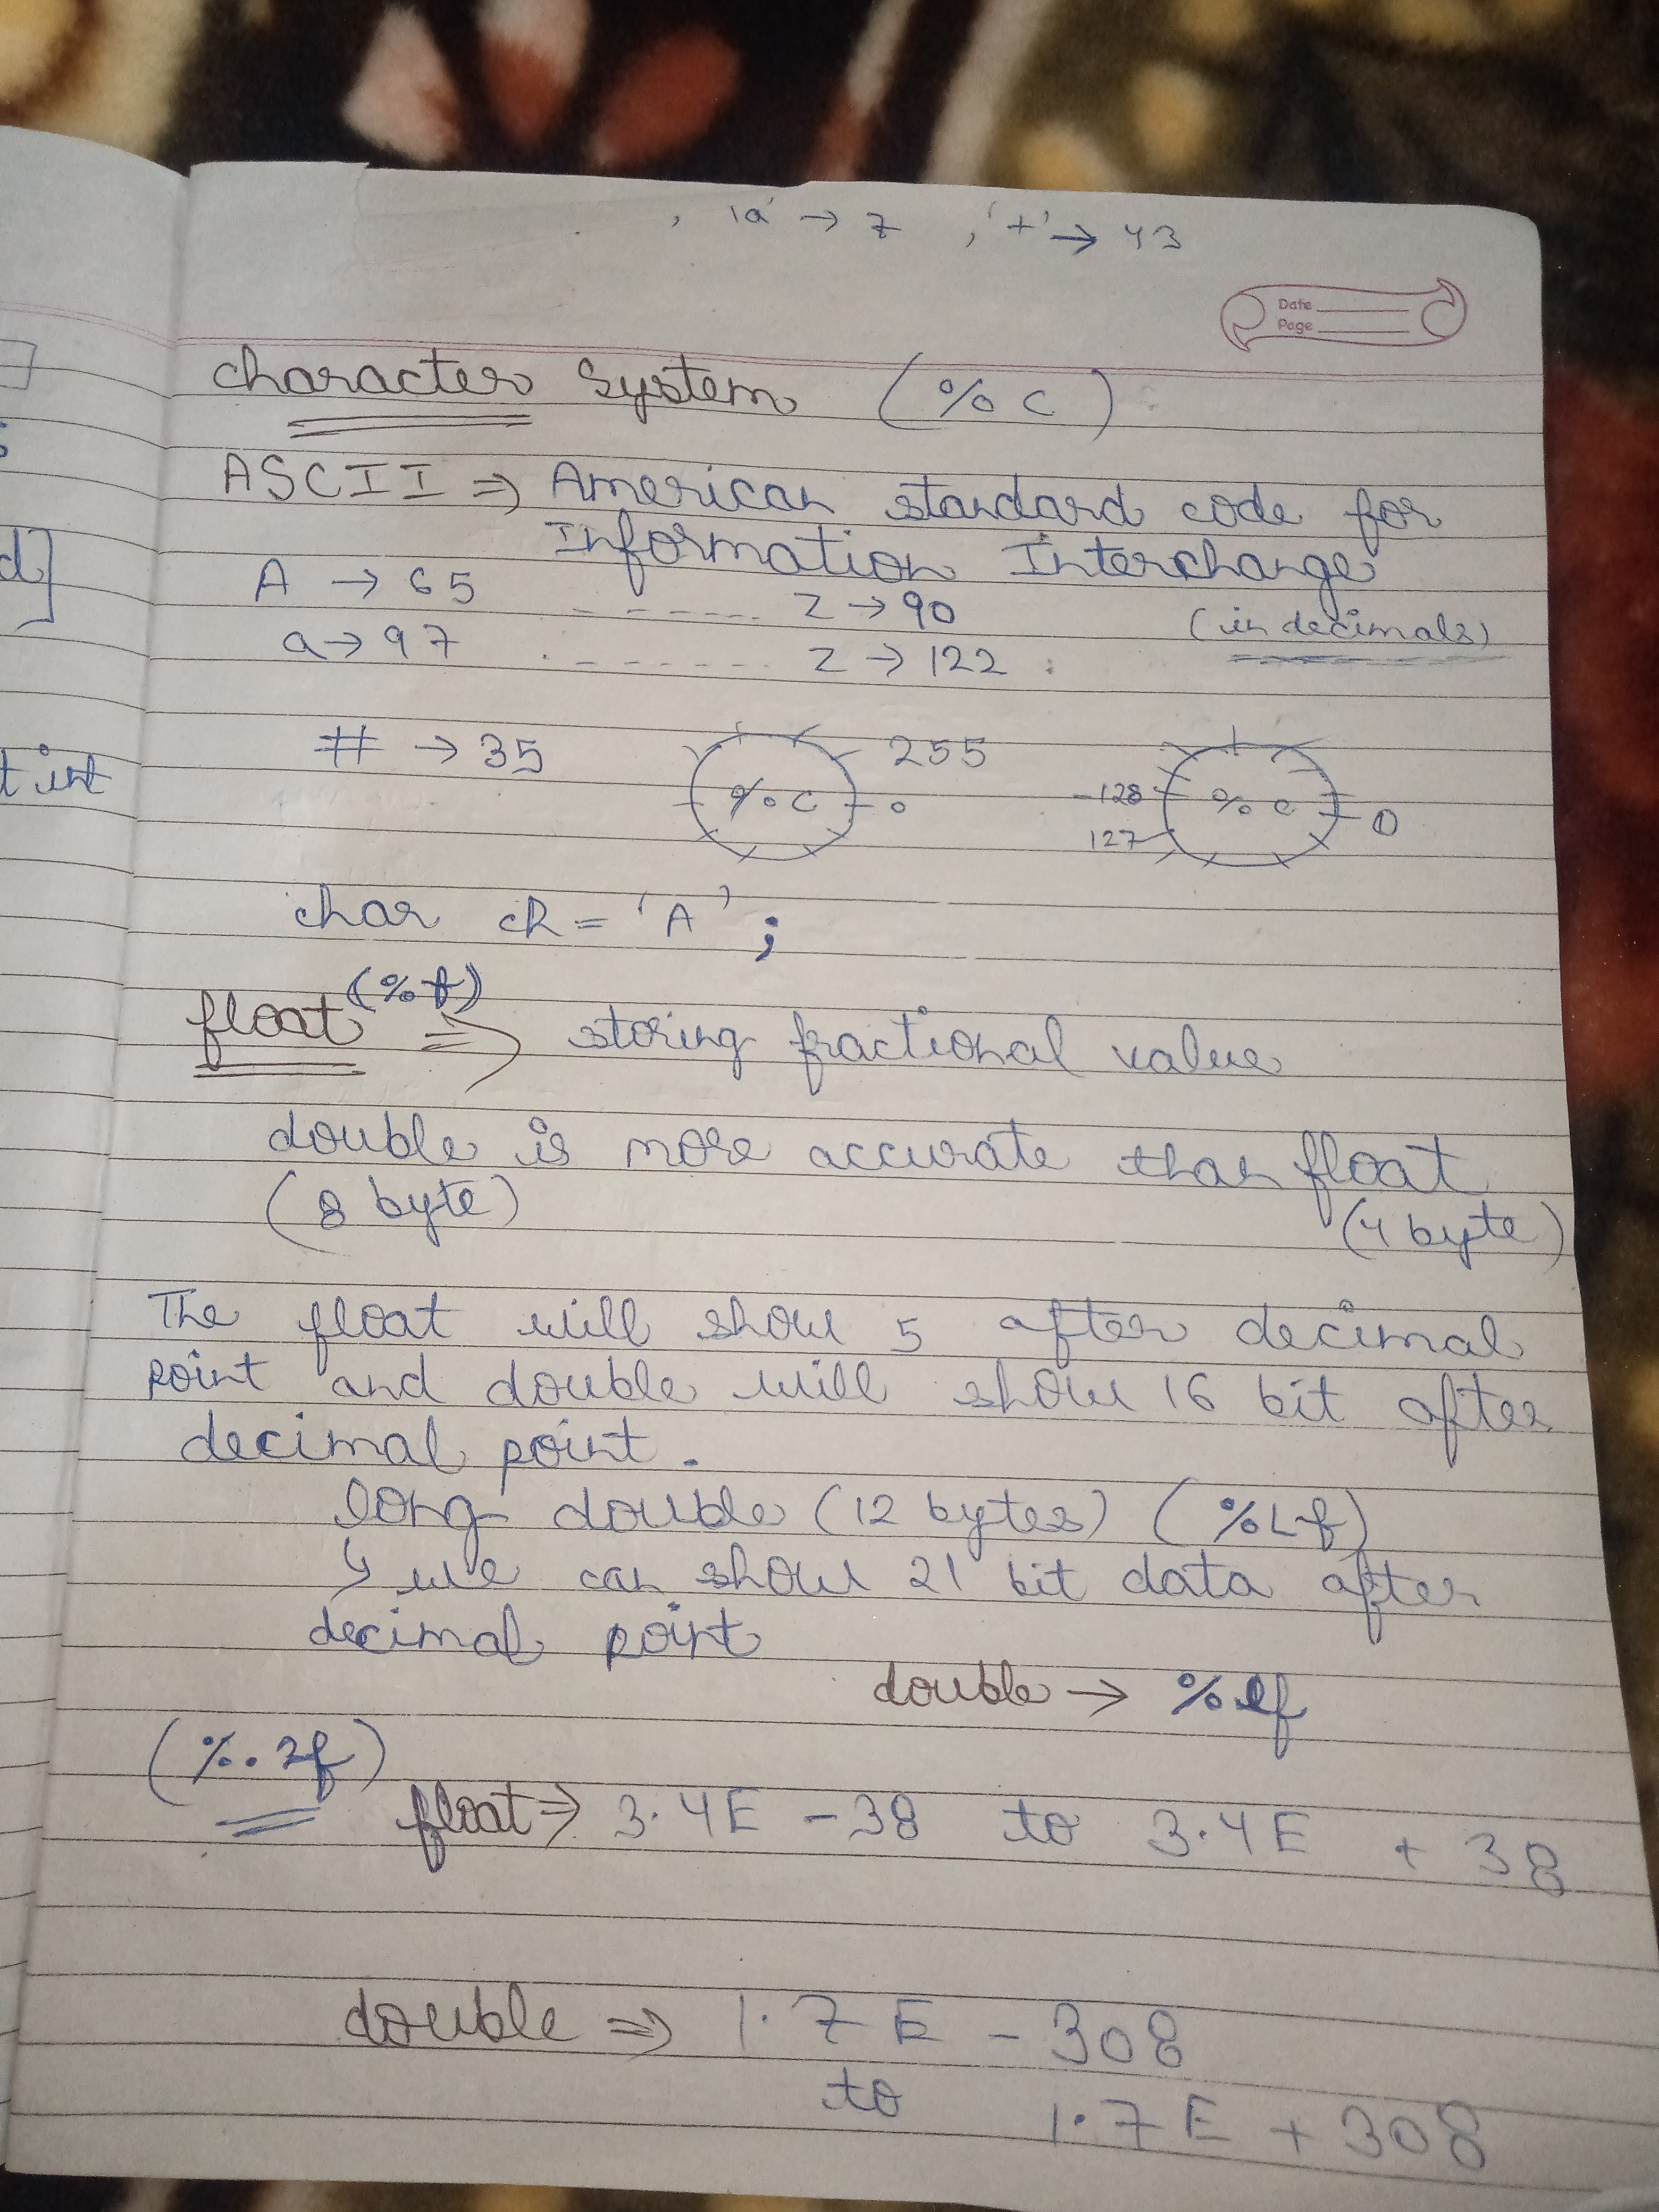 , '\a' → 7 , '+' → 43
Date
Page
character system (%c)
ASCII ⇒ American standard code for
Information Interchange
A → 65 ------ Z → 90 (in decimals)
a → 97 ------- z → 122
# → 35
255
%c 0
-128
127
%c 0
char ch = 'A' ;
float (%f) ⇒ storing fractional value
double is more accurate than float
(8 byte) (4 byte)
The float will show 5 after decimal
point and double will show 16 bit after
decimal point.
long double (12 bytes) (%Lf)
↳ we can show 21 bit data after
decimal point
double → %lf
(%.2f)
float ⇒ 3.4E - 38 to 3.4E + 38
double ⇒ 1.7E - 308
to 1.7E + 308
d]
t int